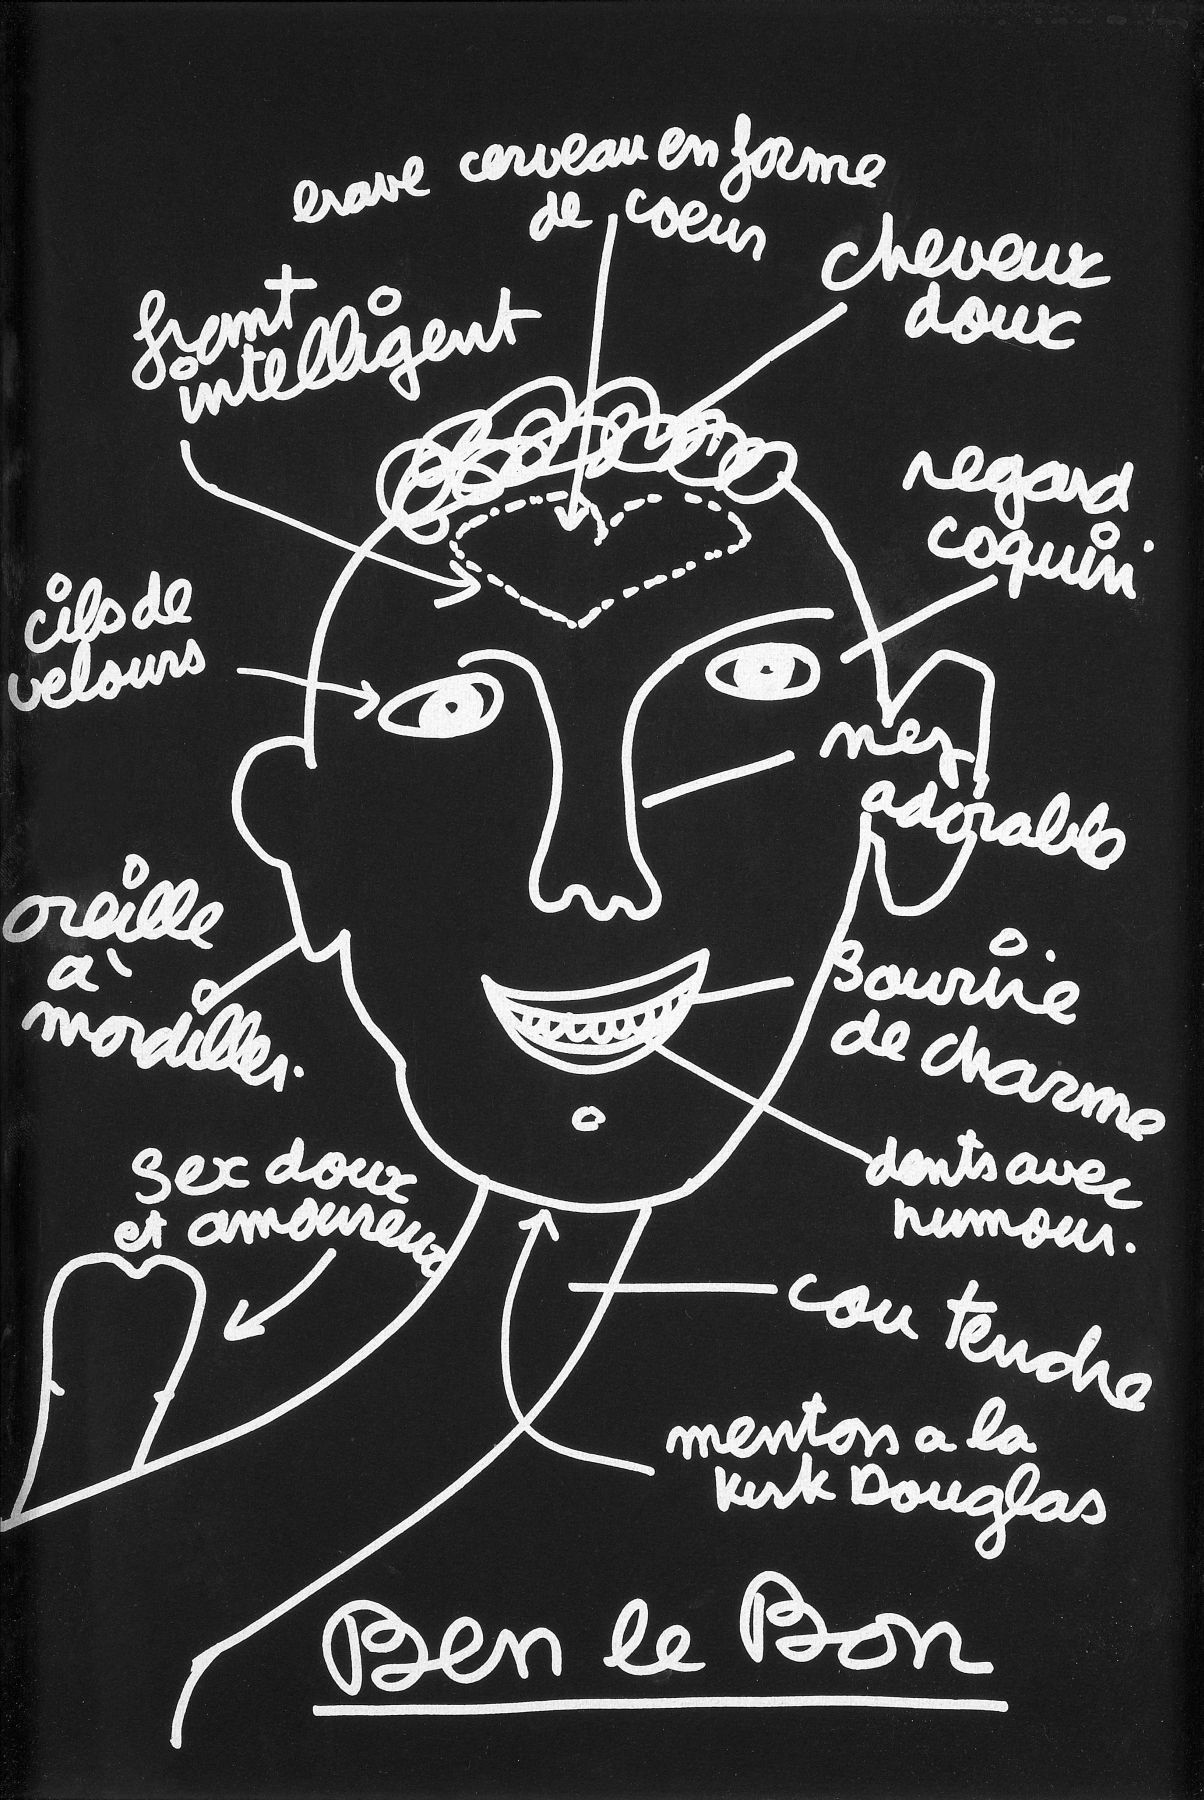 crave cerveau en forme
de coeur
cheveux
doux
front
intelligent
regard
coquin
cils de
velours
nez
adorable
oreille
à
mordiller.
sourire
de charme
dents avec
humour.
sex doux
et amoureux
cou tendre
menton a la
Kirk Douglas
Ben le Bon